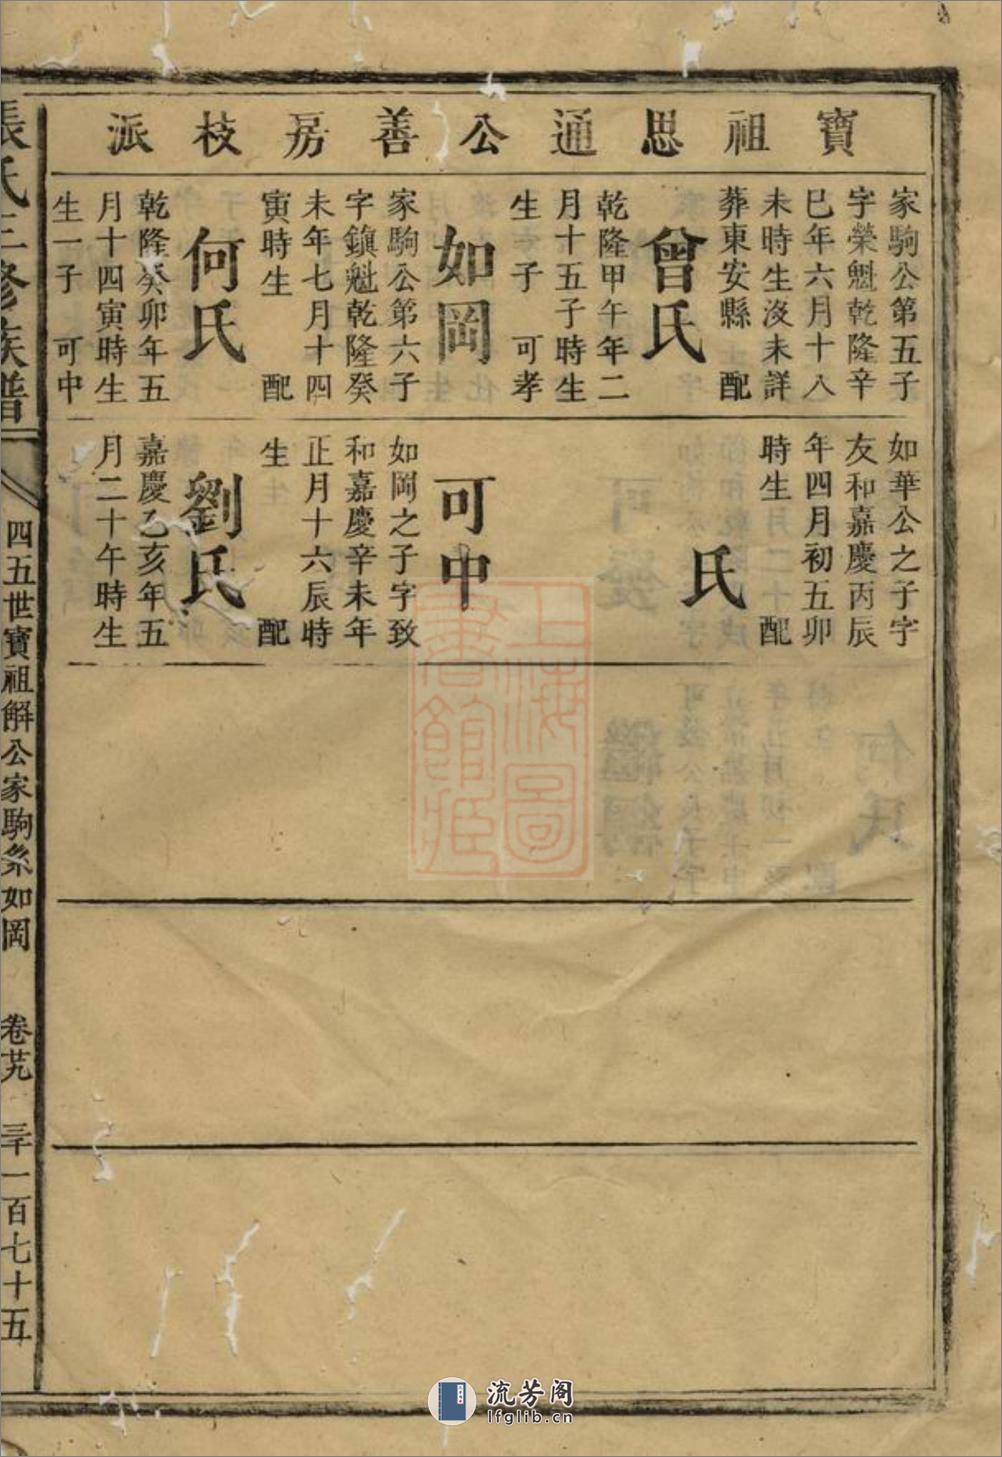 寶祖思通公善房枝派
家駒公第五子
字榮魁乾隆辛
巳年六月十八
未時生沒未詳
葬東安縣 配
曾氏
乾隆甲午年二
月十五子時生
生子 可孝
如岡
家駒公第六子
字鎮魁乾隆癸
未年七月十四
寅時生 配
何氏
乾隆癸卯年五
月十四寅時生
生一子 可中
如華公之子字
友和嘉慶丙辰
年四月初五卯
時生 配
氏
可中
如岡之子字致
和嘉慶辛未年
正月十六辰時
生 配
劉氏
嘉慶乙亥年五
月二十午時生
張氏三修族譜
四五世寶祖解公家駒系如岡
卷廿九
三千一百七十五
上海圖書館藏
流芳阁
lfglib.cn